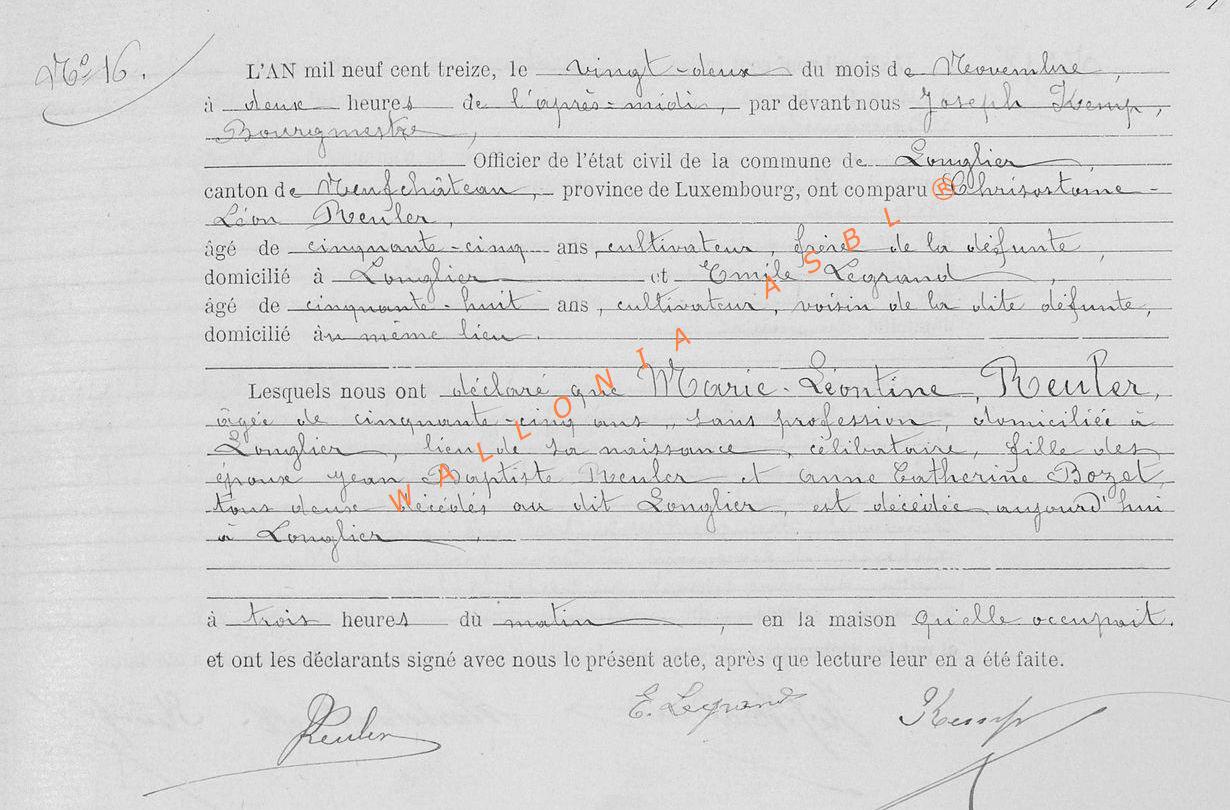 No 16.
L'AN mil neuf cent treize, le vingt-deux du mois de Novembre,
à deux heures de l'après-midi, par devant nous Joseph Kemp,
Bourgmestre,
Officier de l'état civil de la commune de Longlier,
canton de Neufchâteau, province de Luxembourg, ont comparu Chrisostome-
Léon Reuler,
âgé de cinquante-cinq ans, cultivateur, frère de la défunte,
domicilié à Longlier et Emile Legrand,
âgé de cinquante-huit ans, cultivateur, voisin de la dite défunte,
domicilié au même lieu.
Lesquels nous ont déclaré que Marie-Léontine Reuler,
âgée de cinquante-cinq ans, sans profession, domiciliée à
Longlier, lieu de sa naissance, célibataire, fille des
époux Jean Baptiste Reuler et Anne Catherine Bozet,
tous deux décédés au dit Longlier, est décédée aujourd'hui
à Longlier,
à trois heures du matin, en la maison qu'elle occupait.
et ont les déclarants signé avec nous le présent acte, après que lecture leur en a été faite.
Reuler E. Legrand Kemp
® WALLONIA ASBL